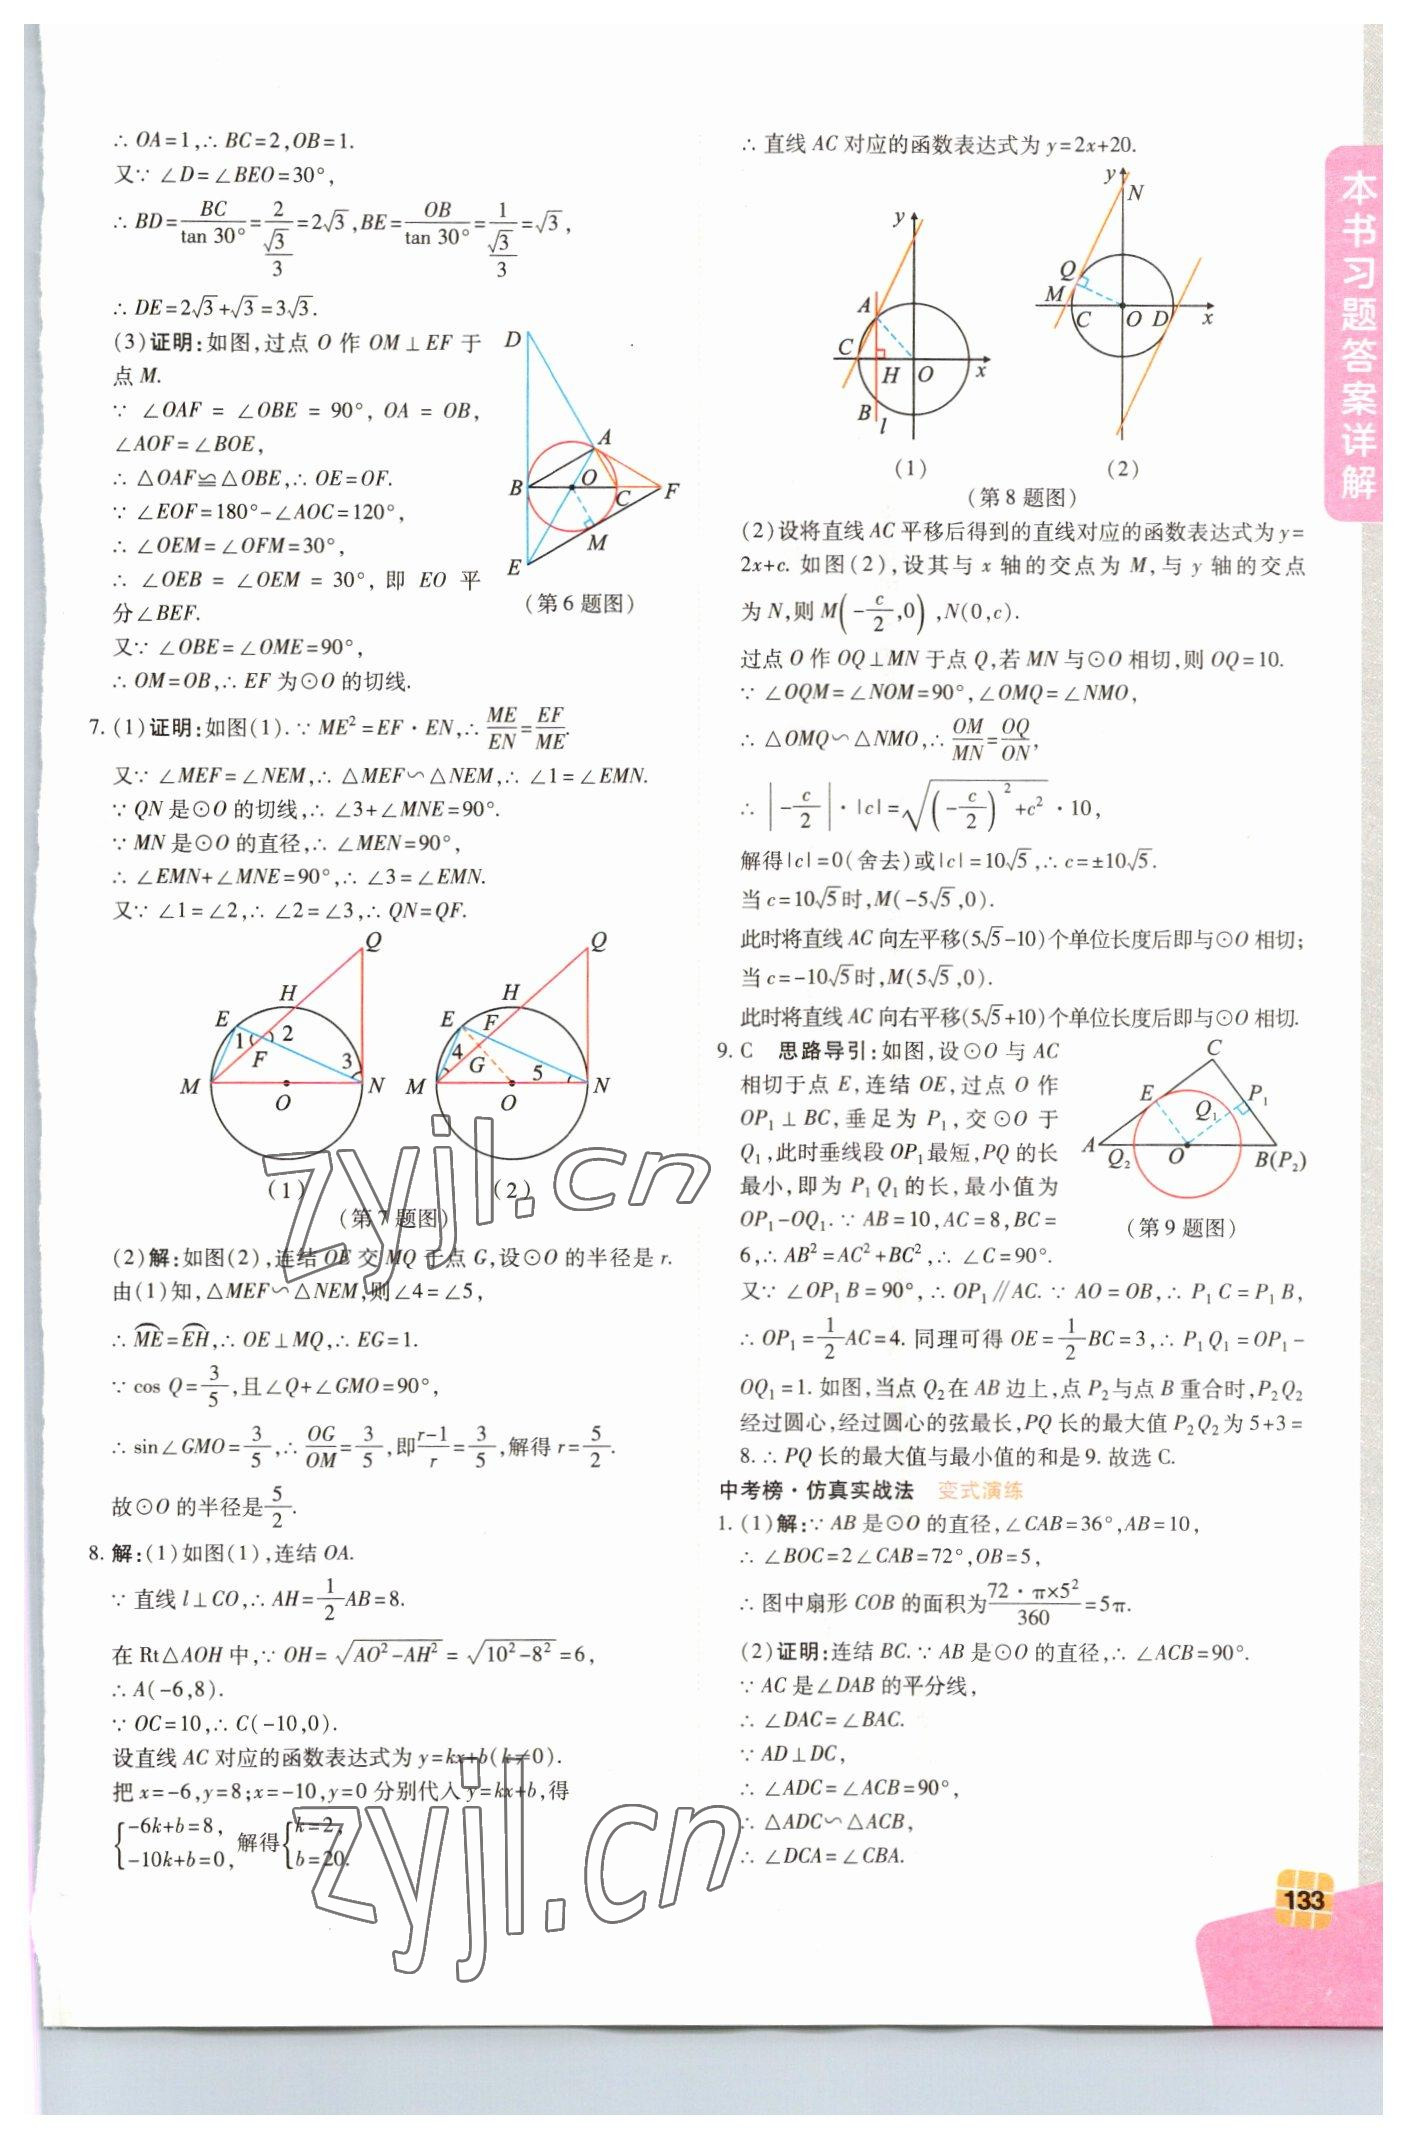 ∴ OA=1,∴ BC=2,OB=1.
又∵ ∠D=∠BEO=30°,
∴ BD=BC/tan 30°=2/(√3/3)=2√3,BE=OB/tan 30°=1/(√3/3)=√3,
∴ DE=2√3+√3=3√3.
(3)证明:如图,过点 O 作 OM⊥EF 于
点 M.
∵ ∠OAF = ∠OBE = 90°, OA = OB,
∠AOF=∠BOE,
∴ △OAF≌△OBE,∴ OE=OF.
∵ ∠EOF=180°-∠AOC=120°,
∴ ∠OEM=∠OFM=30°,
∴ ∠OEB = ∠OEM = 30°, 即 EO 平
分∠BEF.
又∵ ∠OBE=∠OME=90°,
∴ OM=OB,∴ EF 为⊙O 的切线.
D
A
B
O
C
F
M
E
(第 6 题图)
7. (1)证明:如图(1). ∵ ME²=EF·EN,∴ ME/EN=EF/ME.
又∵ ∠MEF=∠NEM,∴ △MEF∽△NEM,∴ ∠1=∠EMN.
∵ QN 是⊙O 的切线,∴ ∠3+∠MNE=90°.
∵ MN 是⊙O 的直径,∴ ∠MEN=90°,
∴ ∠EMN+∠MNE=90°,∴ ∠3=∠EMN.
又∵ ∠1=∠2,∴ ∠2=∠3,∴ QN=QF.
Q
H
E
1
2
F
3
M
N
O
(1)
Q
H
E
F
4
G
5
M
N
O
(2)
(第 7 题图)
(2)解:如图(2),连结 OE 交 MQ 于点 G,设⊙O 的半径是 r.
由(1)知,△MEF∽△NEM,则∠4=∠5,
∴ ME=EH,∴ OE⊥MQ,∴ EG=1.
∵ cos Q=3/5,且∠Q+∠GMO=90°,
∴ sin∠GMO=3/5,∴ OG/OM=3/5,即(r-1)/r=3/5,解得 r=5/2.
故⊙O 的半径是5/2.
8. 解:(1)如图(1),连结 OA.
∵ 直线 l⊥CO,∴ AH=1/2AB=8.
在 Rt△AOH 中,∵ OH=√(AO²-AH²)=√(10²-8²)=6,
∴ A(-6,8).
∵ OC=10,∴ C(-10,0).
设直线 AC 对应的函数表达式为 y=kx+b(k≠0).
把 x=-6,y=8;x=-10,y=0 分别代入 y=kx+b,得
{-6k+b=8, -10k+b=0, 解得{k=2, b=20.
∴ 直线 AC 对应的函数表达式为 y=2x+20.
y
A
C
H
O
x
B
l
(1)
y
N
Q
M
C
O
D
x
(2)
(第 8 题图)
(2)设将直线 AC 平移后得到的直线对应的函数表达式为 y=
2x+c. 如图(2),设其与 x 轴的交点为 M,与 y 轴的交点
为 N,则 M(-c/2,0),N(0,c).
过点 O 作 OQ⊥MN 于点 Q,若 MN 与⊙O 相切,则 OQ=10.
∵ ∠OQM=∠NOM=90°,∠OMQ=∠NMO,
∴ △OMQ∽△NMO,∴ OM/MN=OQ/ON,
∴ |-c/2|·|c|=√((-c/2)²+c²)·10,
解得|c|=0(舍去)或|c|=10√5,∴ c=±10√5.
当 c=10√5时,M(-5√5,0).
此时将直线 AC 向左平移(5√5-10)个单位长度后即与⊙O 相切;
当 c=-10√5时,M(5√5,0).
此时将直线 AC 向右平移(5√5+10)个单位长度后即与⊙O 相切.
9. C 思路导引:如图,设⊙O 与 AC
相切于点 E,连结 OE,过点 O 作
OP₁⊥BC,垂足为 P₁,交⊙O 于
Q₁,此时垂线段 OP₁最短,PQ 的长
最小,即为 P₁Q₁的长,最小值为
OP₁-OQ₁. ∵ AB=10,AC=8,BC=
6,∴ AB²=AC²+BC²,∴ ∠C=90°.
C
E
P₁
Q₁
A
Q₂
O
B(P₂)
(第 9 题图)
又∵ ∠OP₁B=90°,∴ OP₁∥AC. ∵ AO=OB,∴ P₁C=P₁B,
∴ OP₁=1/2AC=4. 同理可得 OE=1/2BC=3,∴ P₁Q₁=OP₁-
OQ₁=1. 如图,当点 Q₂在 AB 边上,点 P₂与点 B 重合时,P₂Q₂
经过圆心,经过圆心的弦最长,PQ 长的最大值 P₂Q₂为 5+3=
8. ∴ PQ 长的最大值与最小值的和是 9. 故选 C.
中考榜·仿真实战法 变式演练
1. (1)解:∵ AB 是⊙O 的直径,∠CAB=36°,AB=10,
∴ ∠BOC=2∠CAB=72°,OB=5,
∴ 图中扇形 COB 的面积为72·π×5²/360=5π.
(2)证明:连结 BC. ∵ AB 是⊙O 的直径,∴ ∠ACB=90°.
∵ AC 是∠DAB 的平分线,
∴ ∠DAC=∠BAC.
∵ AD⊥DC,
∴ ∠ADC=∠ACB=90°,
∴ △ADC∽△ACB,
∴ ∠DCA=∠CBA.
本书习题答案详解
133
zyjl.cn
zyjl.cn